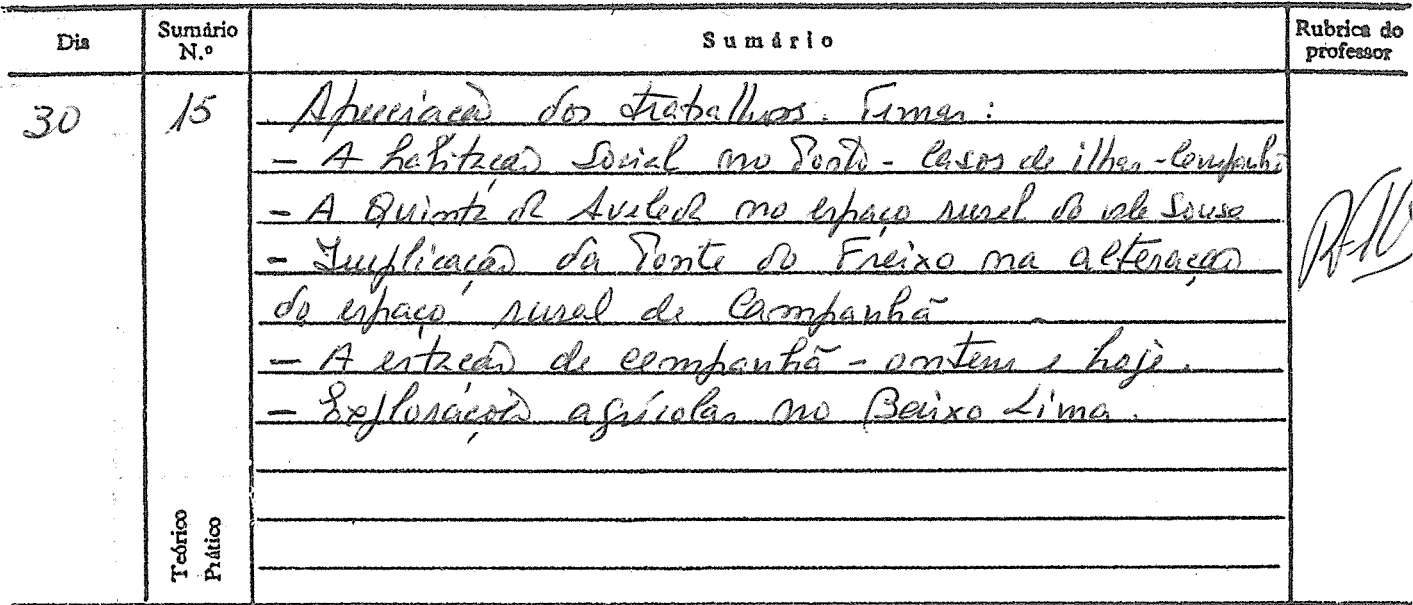 Dia
Sumário N.º
Sumário
Rubrica do professor
30
15
Apreciação dos trabalhos. Temas:
- A habitação Social no Porto - Casos de ilhas - Campanhã
- A Quinta da Aveleda no espaço rural do vale Sousa
- Implicação da Ponte do Freixo na alteração
do espaço rural de Campanhã
- A estação de campanhã - ontem e hoje.
- Explorações agrícolas no Baixo Lima.
Teórico
Prático